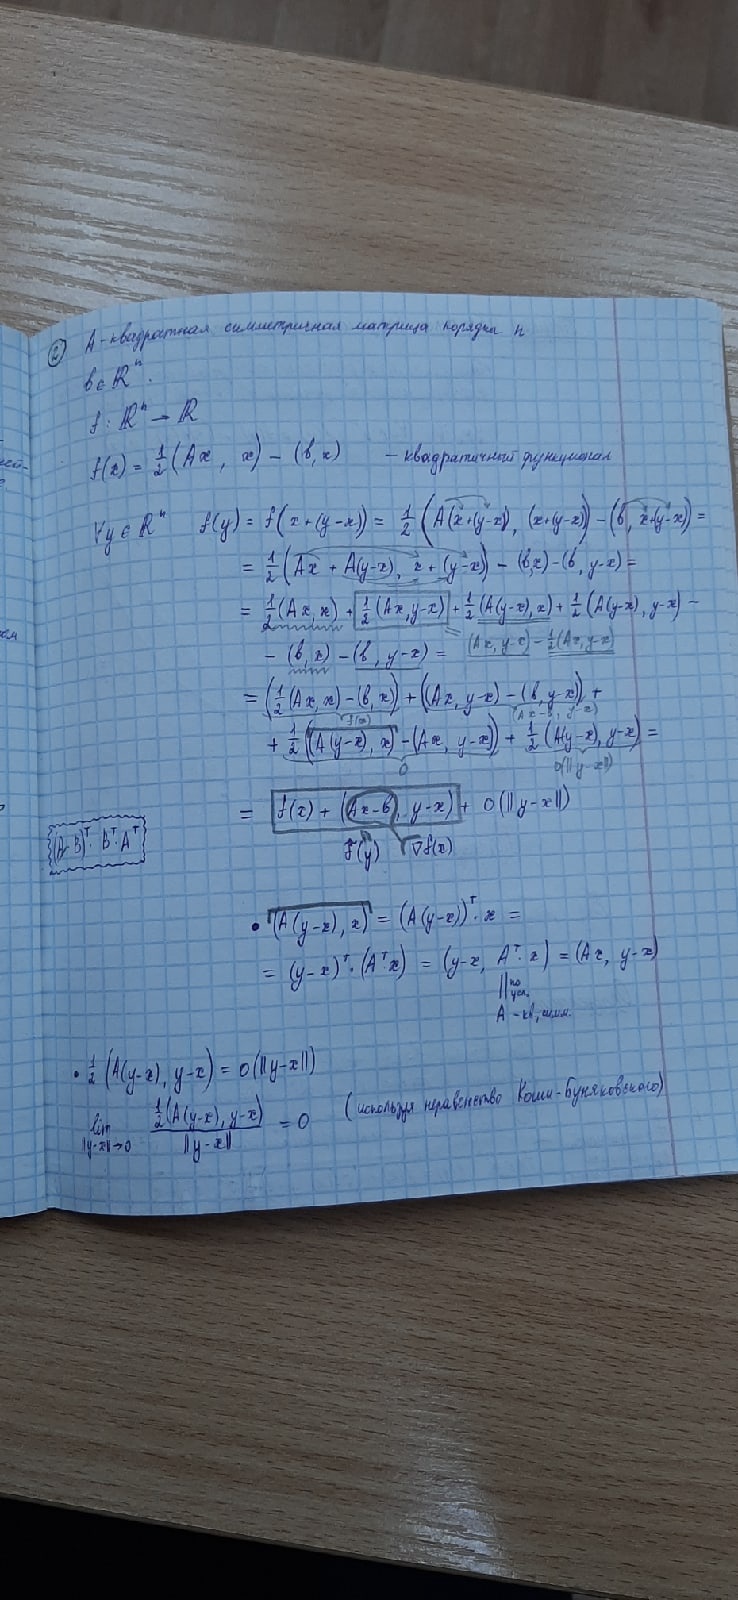 ② A - квадратная симметричная матрица порядка n
b ∈ ℝⁿ.
f : ℝⁿ → ℝ
f(x) = ½(Ax, x) − (b, x) – квадратичный функционал
∀y ∈ ℝⁿ f(y) = f(x+(y−x)) = ½(A(x+(y−x)), (x+(y−x))) − (b, x+(y−x)) =
= ½(Ax + A(y−x), x+(y−x)) − (b,x) − (b, y−x) =
= ½(Ax, x) + ½(Ax, y−x) + ½(A(y−x), x) + ½(A(y−x), y−x) −
− (b, x) − (b, y−x) = (Ax, y−x) − ½(Ax, y−x)
= (½(Ax, x) − (b, x)) + ((Ax, y−x) − (b, y−x)) +
f(x) (Ax−b, y−x)
+ ½((A(y−x), x) − (Ax, y−x)) + ½(A(y−x), y−x) =
0 o(‖y−x‖)
= f(x) + (Ax−b, y−x) + o(‖y−x‖)
(y) ∇f(x)
(A·B)ᵀ = Bᵀ·Aᵀ
• (A(y−x), x) = (A(y−x))ᵀ·x =
= (y−x)ᵀ·(Aᵀ·x) = (y−x, Aᵀ·x) = (Ax, y−x)
‖ по усл.
A – кв, симм.
• ½(A(y−x), y−x) = o(‖y−x‖)
lim ‖y−x‖→0 ½(A(y−x), y−x) / ‖y−x‖ = 0 (используя неравенство Коши-Буняковского)